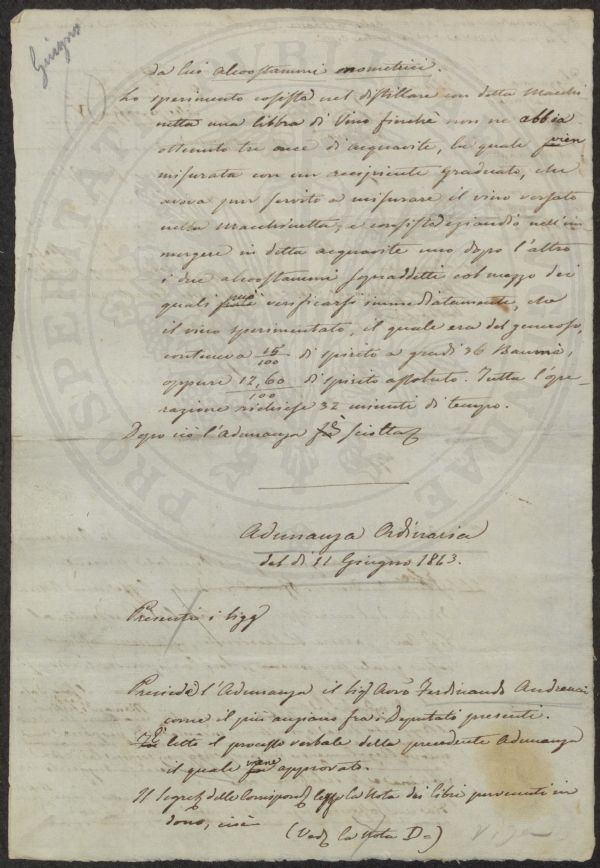 Giugno
da lui alcoostammi enometrici.
Lo sperimento consistè nel distillare con detta Macchi
netta una libbra di Vino finchè non ne abbia
ottenuto tre once di acquavite, la quale vien
misurata con un recipiente graduato, che
aveva pur servito a misurare il vino versato
nella Macchinetta; e consistè eziandio nell'im
mergere in detta acquavite uno dopo l'altro
i due alcoostammi sopraddetti col mezzo dei
quali può verificarsi immediatamente, che
il vino sperimentato, il quale era del generoso,
conteneva 15/100 di spirito a gradi 36 Baumè,
oppure 12,60/100 di spirito assoluto. Tutta l'ope-
razione richiese 32 minuti di tempo.
Dopo ciò l'Adunanza è sciolta
Adunanza Ordinaria
del dì 11 Giugno 1863.
Presenti i Sigg
Presiede l'Adunanza il Sig Avvo Ferdinando Andreucci
come il più anziano fra i Deputati presenti.
È letto il processo verbale della precedente Adunanza
il quale viene approvato.
Il Segreto delle Corrispond legge la Nota dei libri pervenuti in
dono, cioè
(Ved la Nota D)
PROSPERITATI